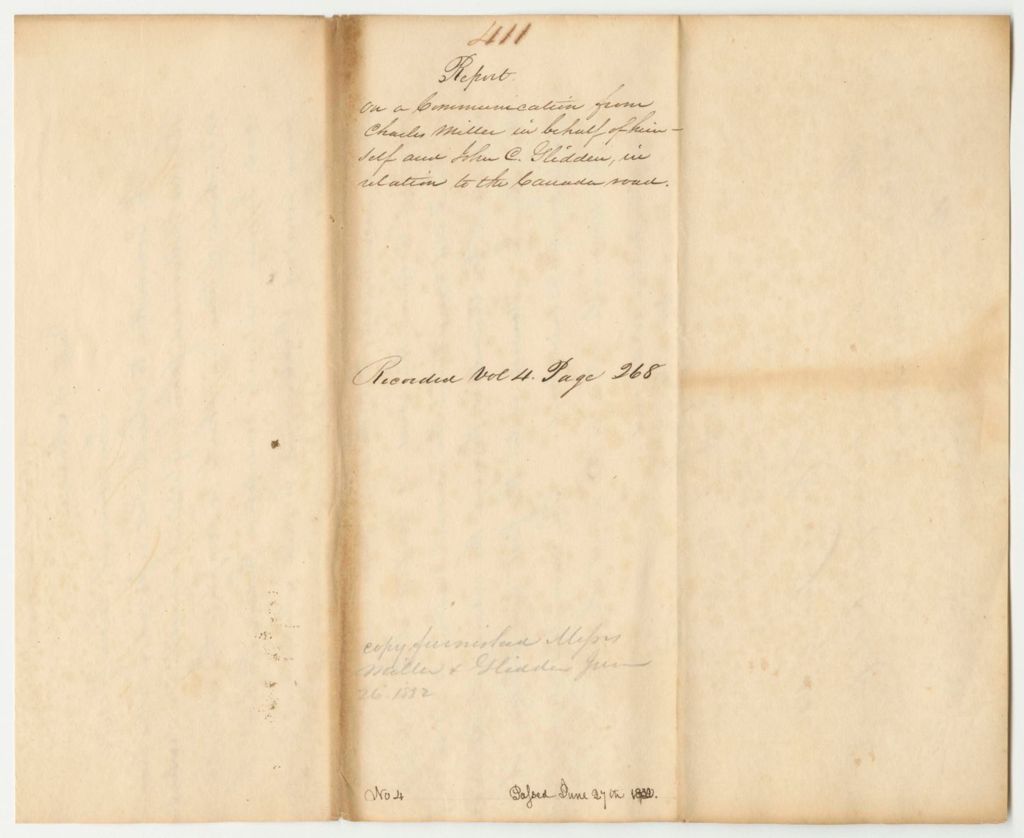 411
Report
on a Communication from
Charles Miller in behalf of him-
self and John C. Glidden, in
relation to the Canada road.
Recorded Vol 4. Page 268
copy furnished Messrs
Miller & Glidden June
26. 1832
No 4
Passed June 27th 1832.